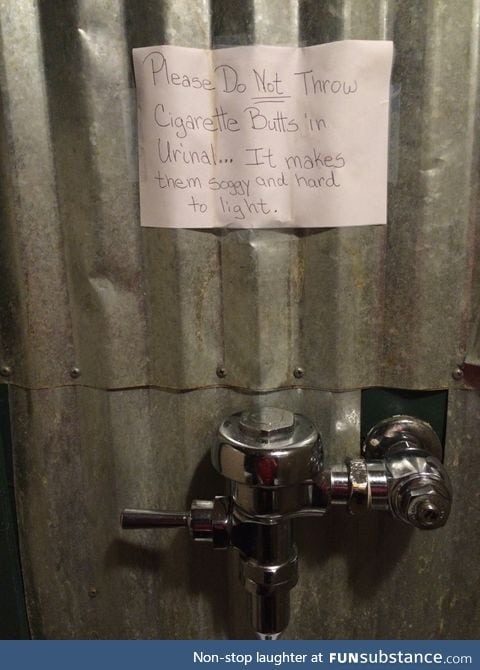 Please Do Not Throw
Cigarette Butts in
Urinal... It makes
them soggy and hard
to light.
Non-stop laughter at FUNsubstance.com